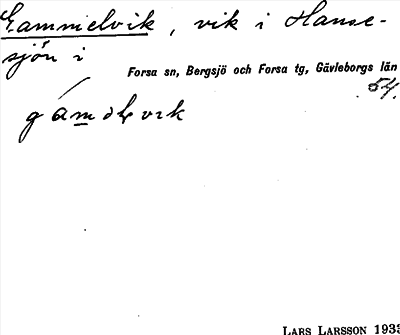 Gammelvik, vik i Hanse-
sjön i
Forsa sn, Bergsjö och Forsa tg, Gävleborgs län
54.
LARS LARSSON 1933